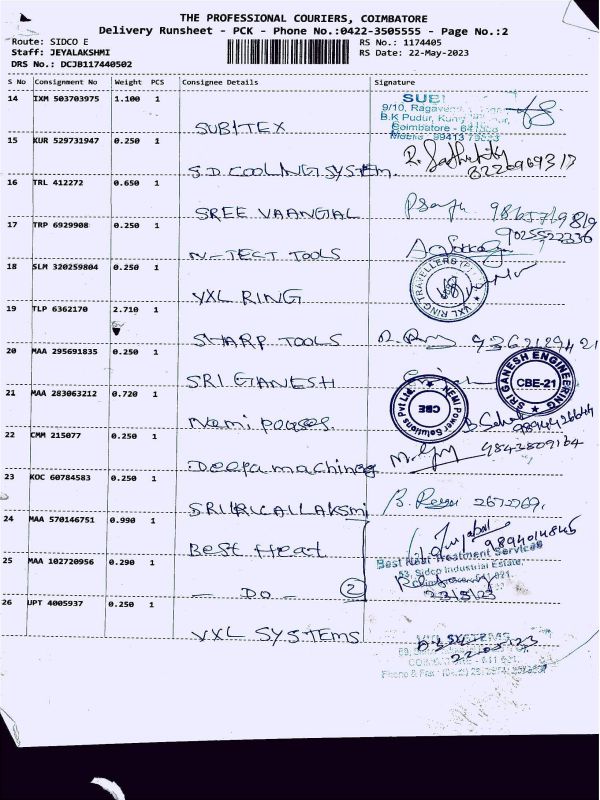 THE PROFESSIONAL COURIERS, COIMBATORE
Delivery Runsheet - PCK - Phone No.:0422-3505555 - Page No.:2
Route: SIDCO E
RS No.: 1174405
Staff: JEYALAKSHMI
RS Date: 22-May-2023
DRS No.: DCJB117440502
S No Consignment No Weight PCS Consignee Details Signature
14 IXM 503703975 1.100 1
SUBITEX
B.K Pudur,
Coimbatore - 641
15 KUR 529731947 0.250 1
S.D. COOLING SYSTEM.
8220969317
16 TRL 412272 0.650 1
SREE VAANGAL
9865719819
17 TRP 6929908 0.250 1
N-TECT TOOLS
9025522336
18 SLM 320259804 0.250 1
VXL RING
VXL RING TRAVELLERS (P)
19 TLP 6362170 2.710 1
SHARP TOOLS
9362129421
20 MAA 295691835 0.250 1
SRI GANESH
SRI GANESH ENGINEERING
CBE-21
21 MAA 283063212 0.720 1
Nemi power
NEMI Power Solutions Pvt Ltd
CBE
22 CMM 215077 0.250 1
Deepa machines
9842809164
23 KOC 60784583 0.250 1
24 MAA 570146751 0.990 1
Best Heat
9894014845
Best Heat Treatment Services
53, Sidco Industrial Estate,
25 MAA 102720956 0.290 1
- DO - 2
22/5/23
26 UPT 4005937 0.250 1
VXL SYSTEMS